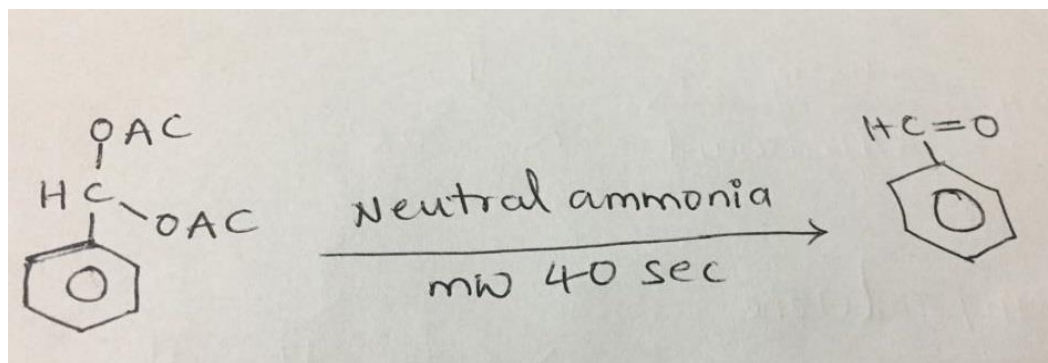 OAC
HC=O
HC
OAC
Neutral ammonia
mw 40 sec